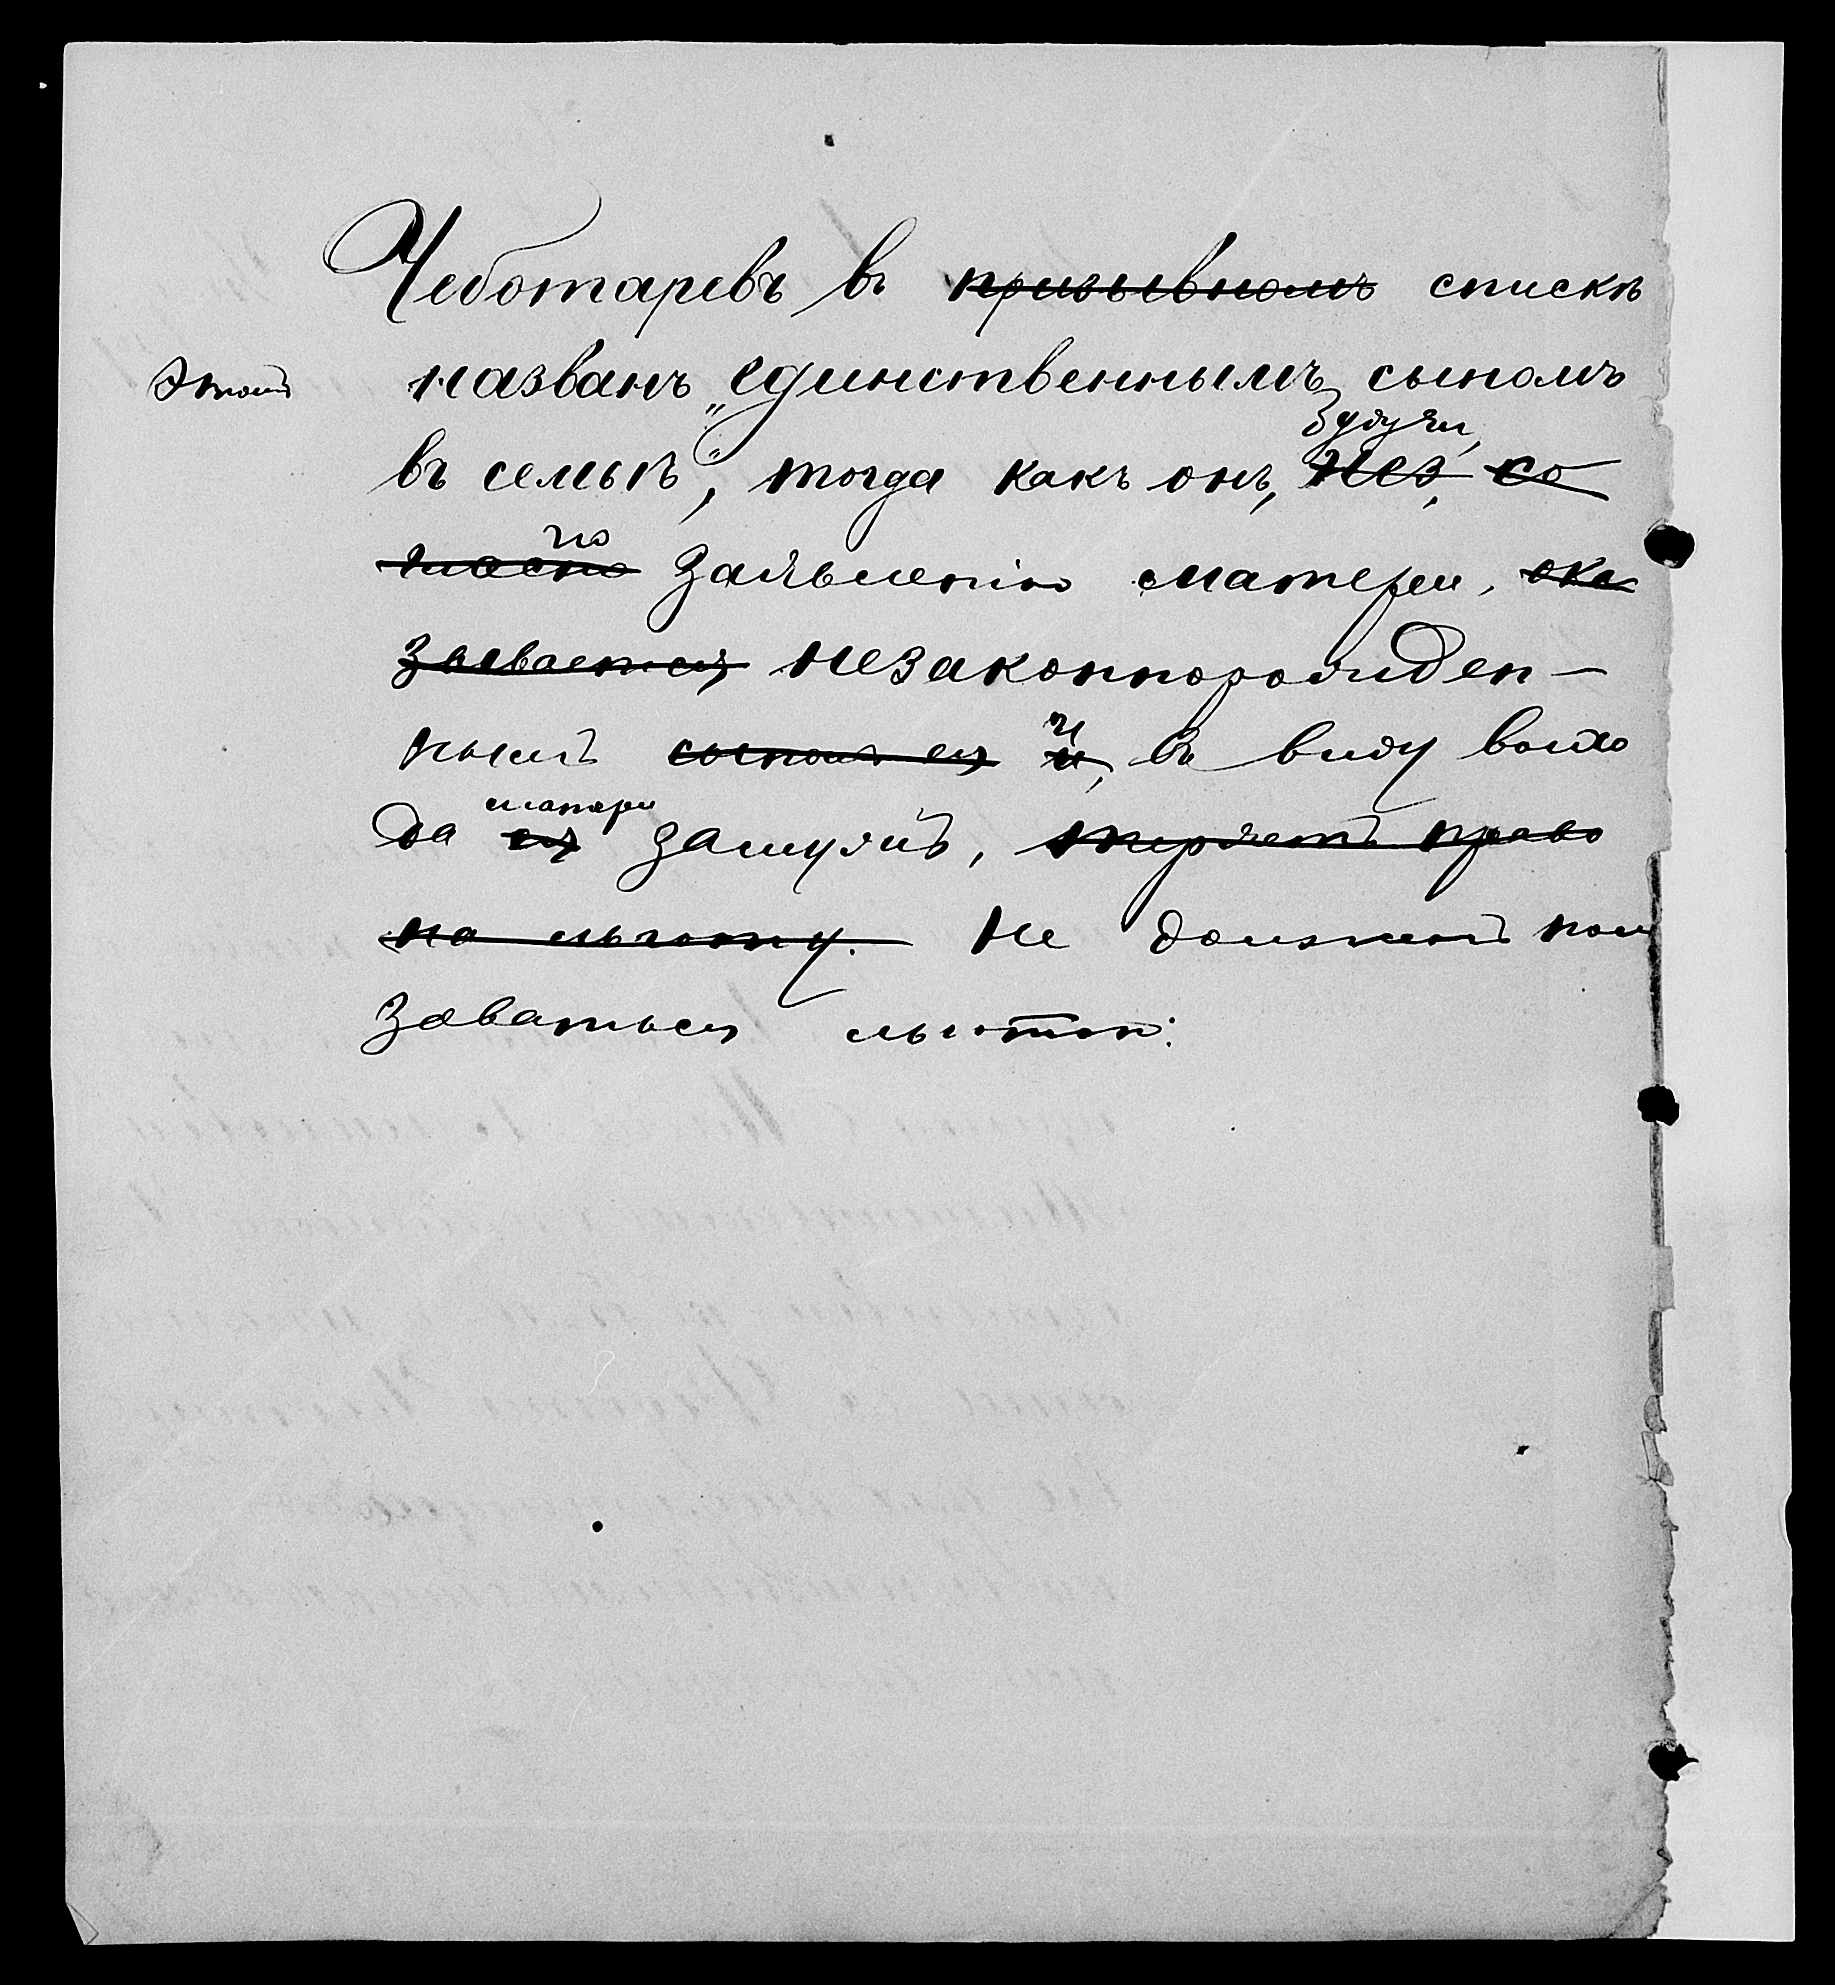 Чеботаревъ въ призывномъ списке
этомъ
названъ „единственнымъ сыномъ
будучи,
въ семьѣ“, тогда какъ онъ, нез, со
по
заявленію матери, ока
зывается незаконнорожден-
нымъ сыномъ ея и, въ виду выхо
матери
да ея замужъ, теряетъ право
на льготу. не долженъ поль
зоваться льготой.